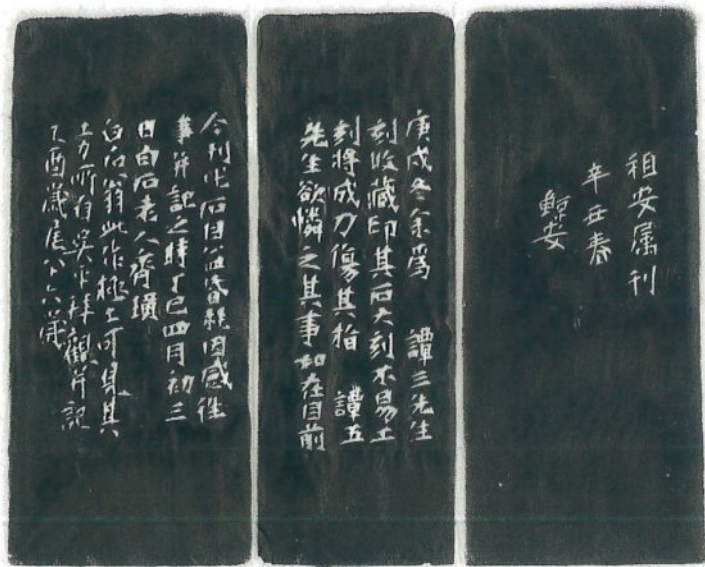 祖安属刊
辛丑春
鲸安
庚戌冬余爲 譚三先生
刻收藏印其石大刻不易工
刻將成刀傷其指 譚五
先生欲憐之其事如在目前
今刊此石因感往
事并記之時丁巳四月初三
日白石老人齊璜
白石翁此作極工可見其
工力所自吳下拜觀并記
乙酉歲尾公六歲